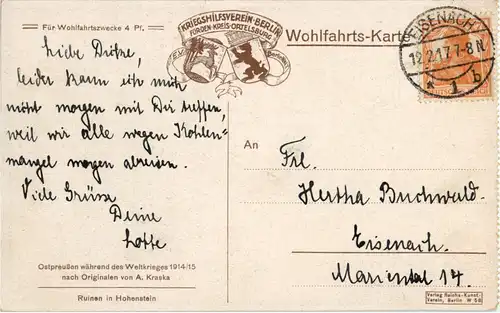 Für Wohlfahrtszwecke 4 Pf.
Liebe
leider kann ich mich
nicht morgen mit Dir treffen,
weil wir alle wegen Kohlen=
mangel morgen abreisen.
Viele Grüsse
Deine
Lotte
Ostpreußen während des Weltkrieges 1914/15
nach Originalen von A. Kraska
Ruinen in Hohenstein
KRIEGSHILFSVEREIN BERLIN
FÜR DEN KREIS ORTELSBURG
Wohlfahrts-Karte
EISENACH
12.2.17. 7-8 N
* 1 b
An
Frl.
Hertha Buchwald.
Eisenach.
Mariental 14.
Verlag Reichs-Kunst-
Verein, Berlin W 58